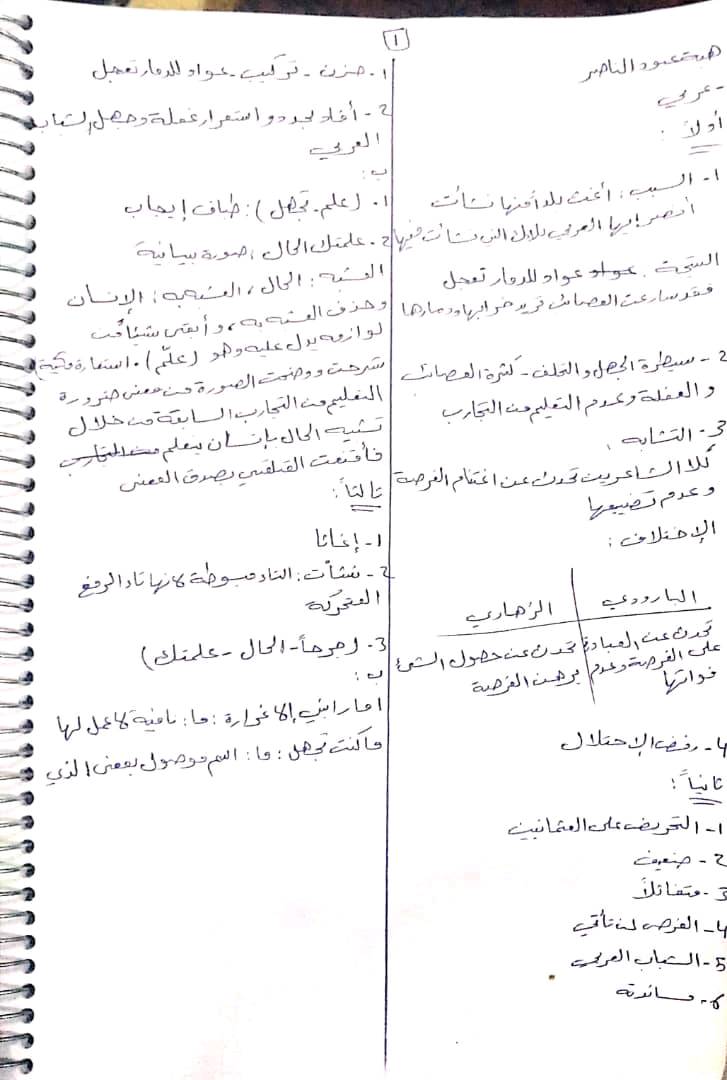 ١
هبة عبود الناصر
- عربي
أولاً :
١- السبب : أغث بلداً منها نشأت
أنصر أيها العربي بلادك التي نشأت فيها
النتيجة . عواد عواد للدمار تعجل
فقد سارعت المصائب تريد خرابها ودمارها
٢- سيطرة الجهل والتخلف - كثرة المصائب
و الغفلة وعدم التعليم من التجارب
٣- التشابه :
كلا الشاعرين تحدث عن اغتنام الفرصة
وعدم تضييعها
الإختلاف :
البارودي
الزهاوي
تحدث عن المبادرة
على الفرصة وعدم
فواتها
تحدث عن حصول الشيء
برهن الفرصة
٤- رفض الإحتلال
ثانياً :
١- التحريض على العثمانيين
٢- ضعيف
٣- متفائلاً
٤- الفرص لن تأتي
5- الشباب العربي
٦- مساندته
١- حزن - تركيب - عواد للدمار تعجل
٢- أفاد تجدد و استمرار غفلة وجهل الشباب
العربي
ب :
١. (علم - تجهل) : طباق إيجاب
٢- علمتك الحال : صورة بيانية
المشبه : الحال ، المشبه به : الإنسان
وحذف المشبه به ، و أبقى شيئاً من
لوازمه يدل عليه وهو (علّم) . استعارة مكنية
شرحت ووضحت الصورة من معنى ضرورة
التعليم من التجارب السابقة من خلال
تشبيه الحال بإنسان يعلم من التجارب
فأقنعت المتلقي بصدق المعنى
ثالثاً :
١- إغاثا
٢- نشأت : التاء مبسوطة لأنها تاء الرفع
المتحركة
٣- (مرجأ - الحال - علمتك)
ب :
إلا غرارة : ما : نافية لا عمل لها
ما كنت تجهل : ما : اسم موصول بمعنى الذي